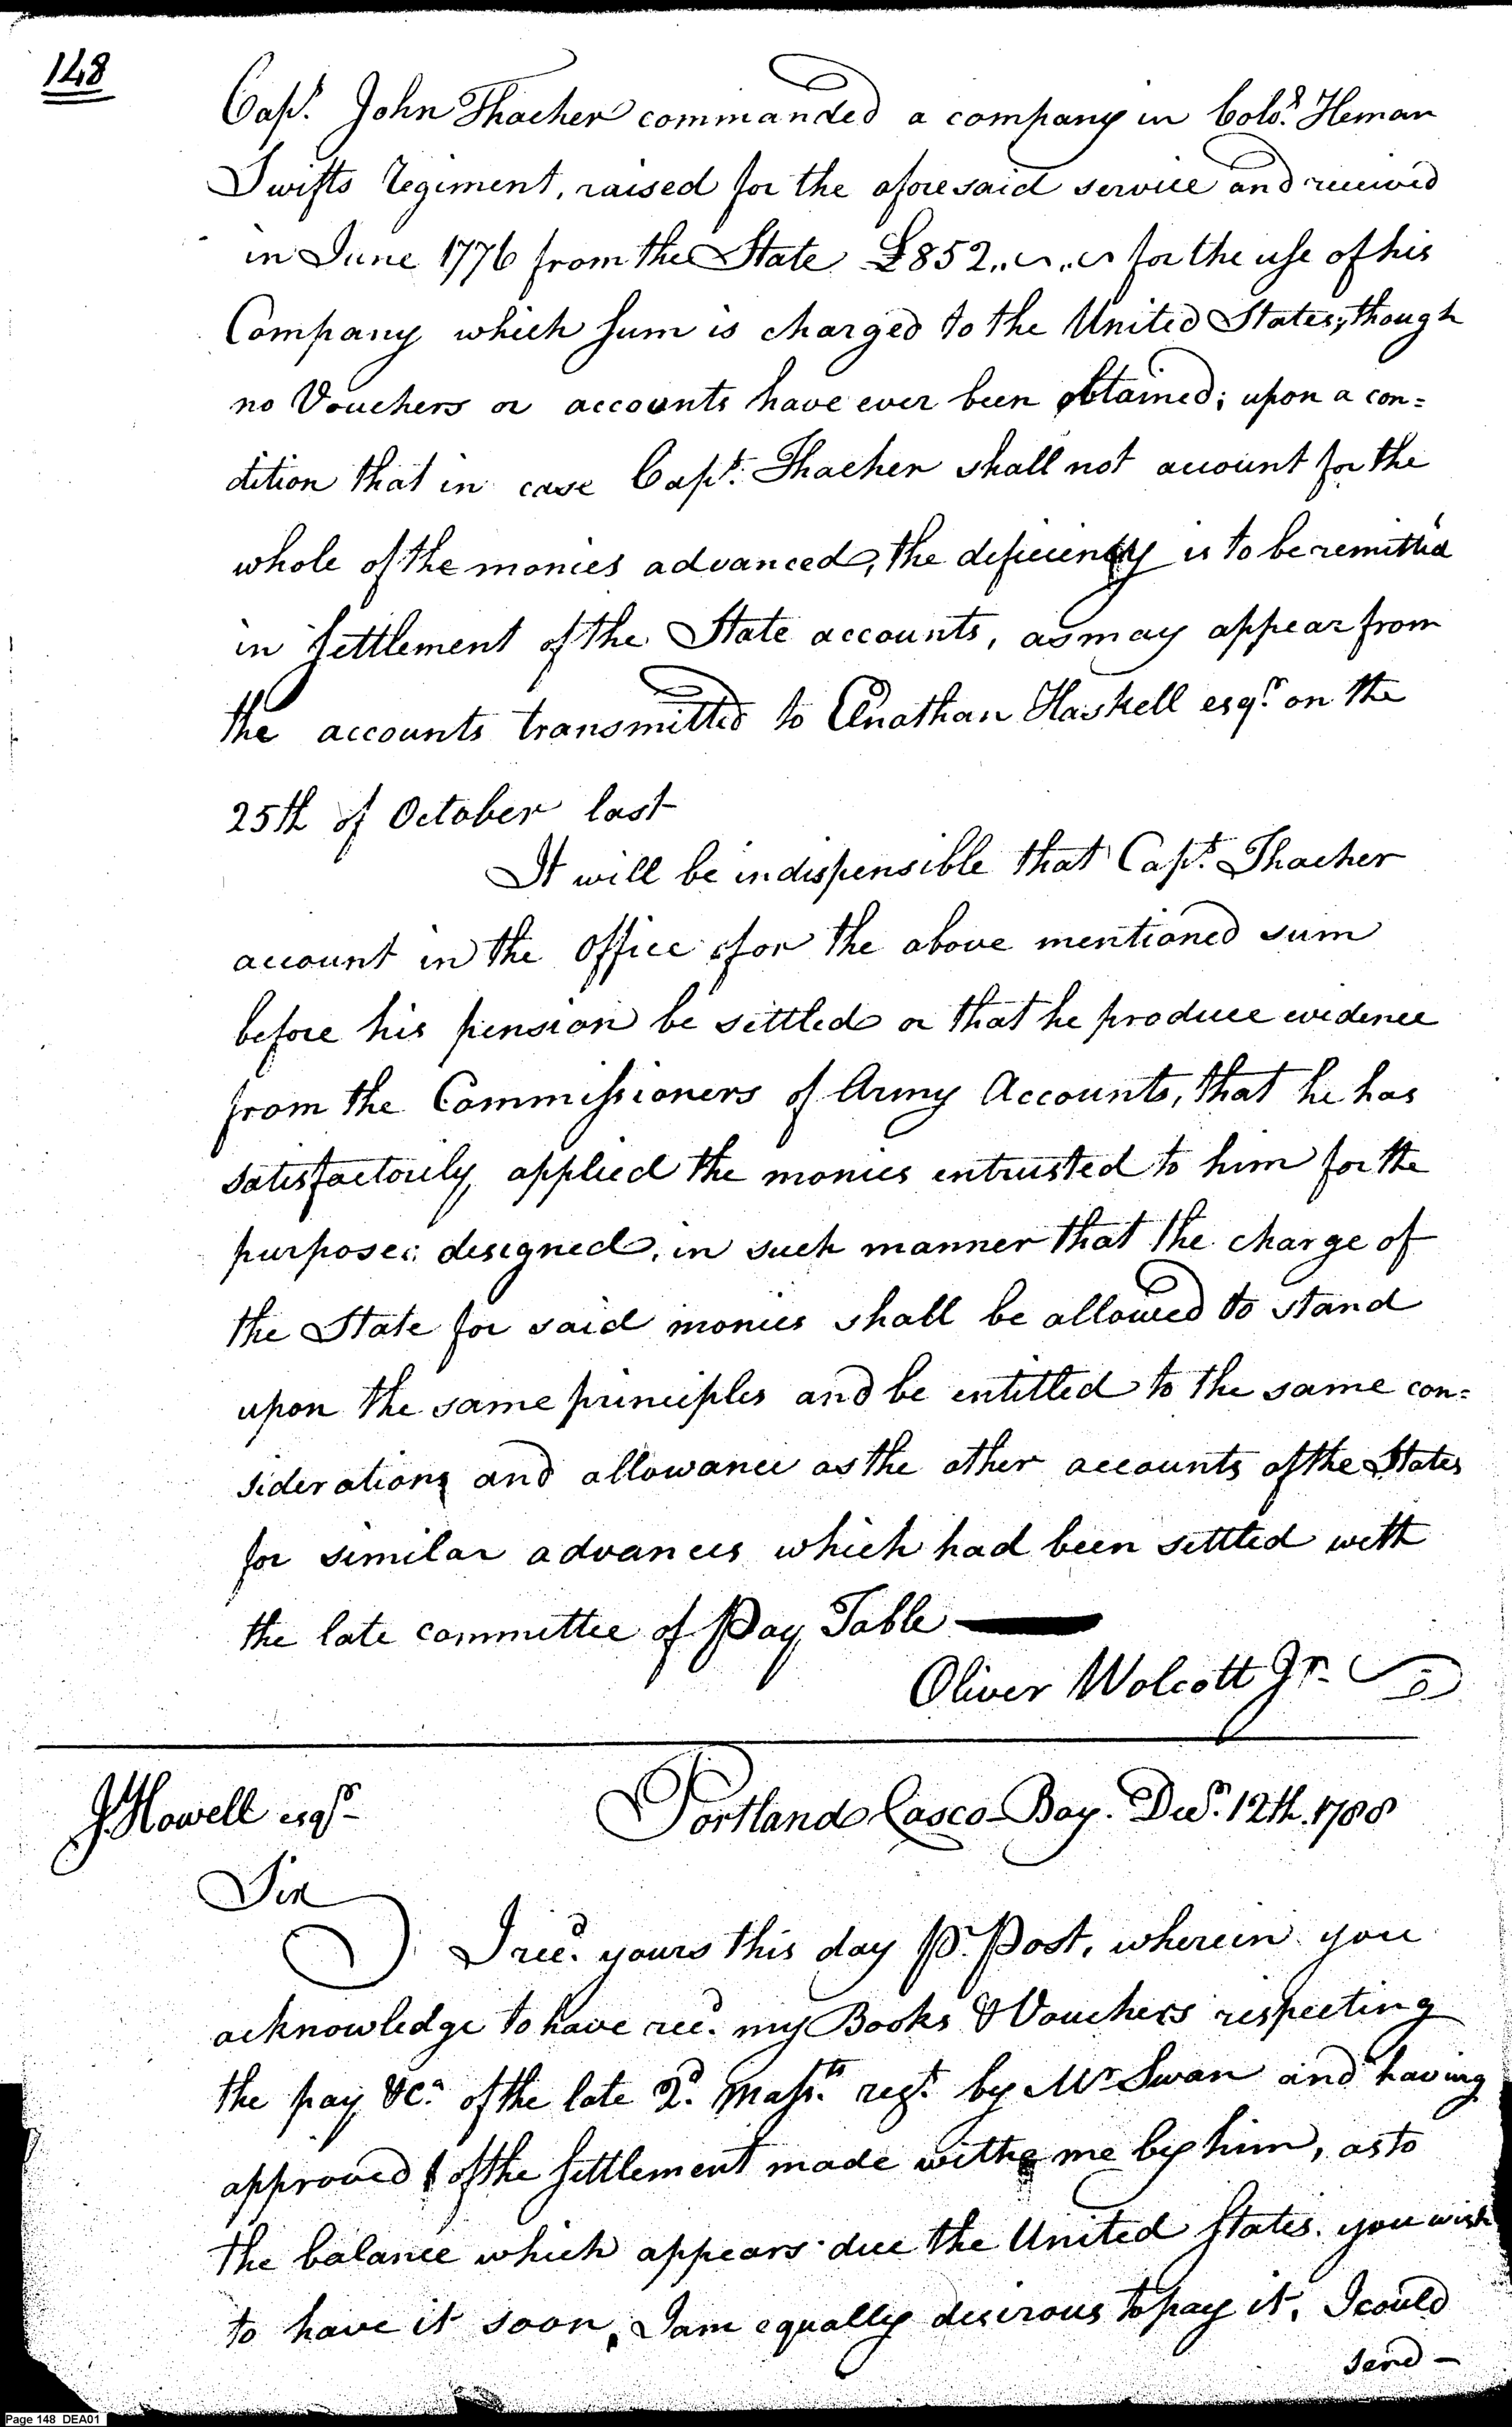 148
Capt. John Thacher commanded a company in Colo. Heman
Swifts regiment, raised for the aforesaid service and received
in June 1776 from the State £852,, ,, for the use of his
Company which sum is charged to the United States, though
no Vouchers or accounts have ever been obtained; upon a con=
dition that in case Capt. Thacher shall not account for the
whole of the monies advanced, the deficiency is to be remitt'd
in settlement of the State accounts, as may appear from
the accounts transmitted to Elnathan Haskell esqr. on the
25th of October last
It will be indispensible that Capt. Thacher
account in the Office for the above mentioned sum
before his pension be settled or that he produce evidence
from the Commissioners of Army Accounts, that he has
satisfactorily applied the monies entrusted to him for the
purposes designed, in such manner that the charge of
the State for said monies shall be allowed to stand
upon the same principles and be entitled to the same con=
siderations and allowance as the other accounts of the States
for similar advances which had been settled with
the late committee of Pay Table
Oliver Wolcott Jr.
J. Howell esqr.
Portland Casco-Bay. Decr. 12th. 1788
Sir
I recd. yours this day Pr. Post, wherein you
acknowledge to have recd. my Books & Vouchers respecting
the pay &ca. of the late 2d. Massts. regt. by Mr. Swan and having
approved of the settlement made with me by him, as to
the balance which appears due the United States. you wish
to have it soon, I am equally desirous to pay it, I could
send -
Page 148 DEA01